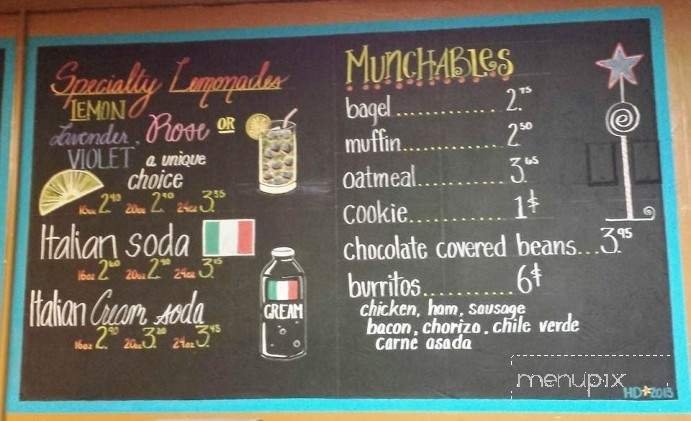 Specialty Lemonades
LEMON
Lavender, Rose OR
VIOLET a unique
choice
16oz 2.40 20oz 2.90 24oz 3.35
Italian soda
16oz 2.60 20oz 2.90 24oz 3.15
Italian Cream soda
16oz 2.90 20oz 3.20 24oz 3.45
CREAM
MUNCHABLES
bagel............ 2.75
muffin............ 2.50
oatmeal.......... 3.65
cookie............ 1¢
chocolate covered beans...3.95
burritos.......... 6¢
chicken, ham, sausage
bacon, chorizo, chile verde
carne asada
menupix
HD★2013